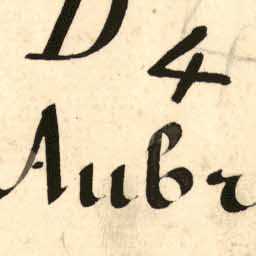 D 4
Aubr